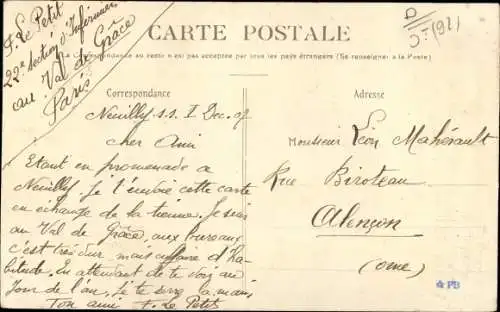 F. Le Petit
22e section d'Infirmiers
au Val de Grâce
Paris
D
JT (92)
CARTE POSTALE
La Correspondance au recto n'est pas acceptée par tous les pays étrangers (Se renseigner à la Poste)
Correspondance
Neuilly s.s. 1 Dec. 07
cher Ami
Etant en promenade a
Neuilly. Je t'envoie cette carte
en échange de la tienne. Je suis
au Val de Grâce, aux bureaux
c'est très dur, mais affaire d'ha-
bitude. En attendant de te voir au
Jour de l'an, je te serre la main
Ton ami F. Le Petit
Adresse
Monsieur Léon Mahérault
Rue Biroteau
Alençon
(Orne)
PB